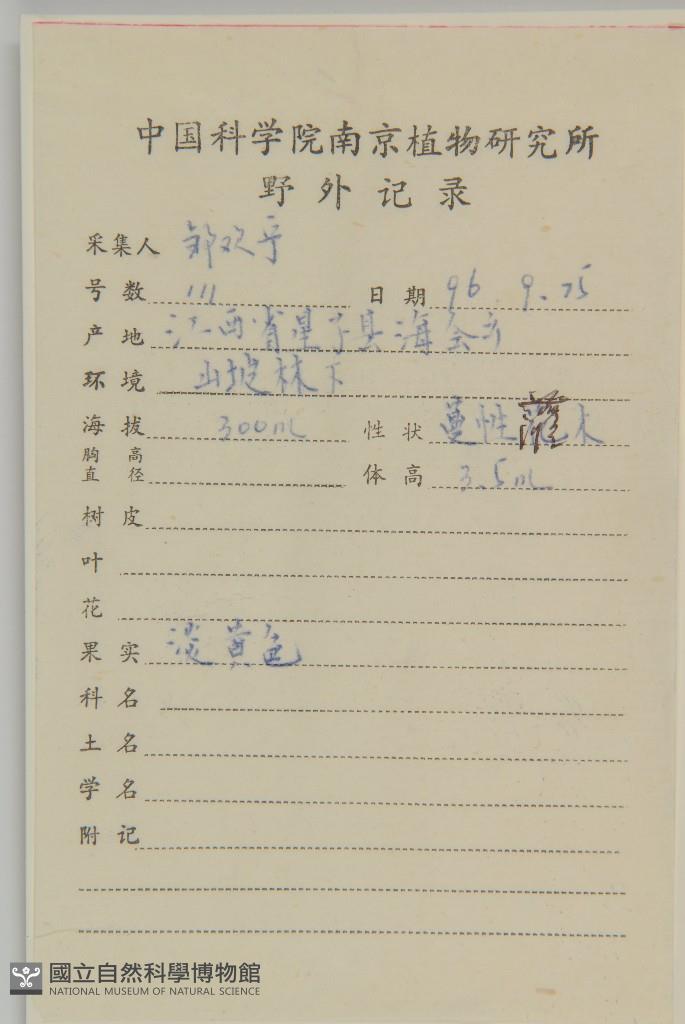 中国科学院南京植物研究所
野外记录
采集人 邹欢宇
号数 111 日期 96.9.25
产地 江西省星子县海会
环境 山坡林下
海拔 300m 性状 蔓性灌木
胸高直径 体高 3.5m
树皮
叶
花
果实 淡黄色
科名
土名
学名
附记
國立自然科學博物館
NATIONAL MUSEUM OF NATURAL SCIENCE